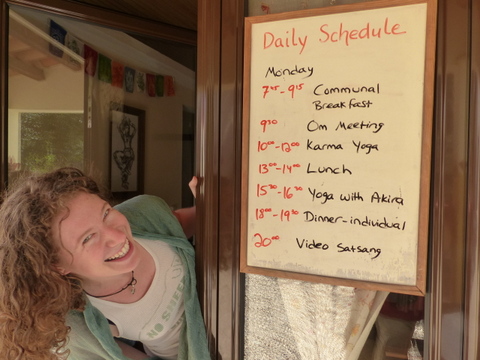 Daily Schedule
Monday
7⁴⁵-9¹⁵ Communal
Breakfast
9³⁰ Om Meeting
10⁰⁰-12⁰⁰ Karma Yoga
13⁰⁰-14⁰⁰ Lunch
15³⁰-16³⁰ Yoga with Akira
18⁰⁰-19³⁰ Dinner-individual
20⁰⁰ Video Satsang